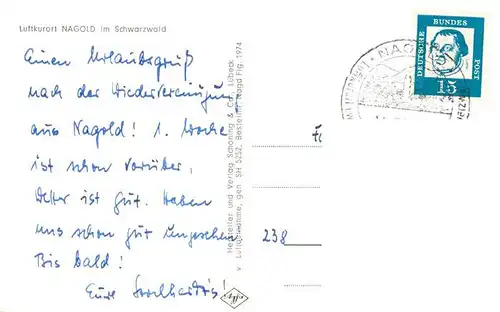 Luftkurort NAGOLD im Schwarzwald
Einen Urlaubsgruß
nach der Wiedervereinigung
aus Nagold! 1. Woche
ist schon vorüber,
Wetter ist gut. Haben
uns schon gut umgesehen.
Bis bald!
Eure
Hersteller und Verlag Schöning & Co., Lübeck
v. Luftaufnahme, gen. SH 5252, Bestell-Nr. Nagd Flg. 1974
238
NAG
DEUTSCHE
BUNDES
POST
15